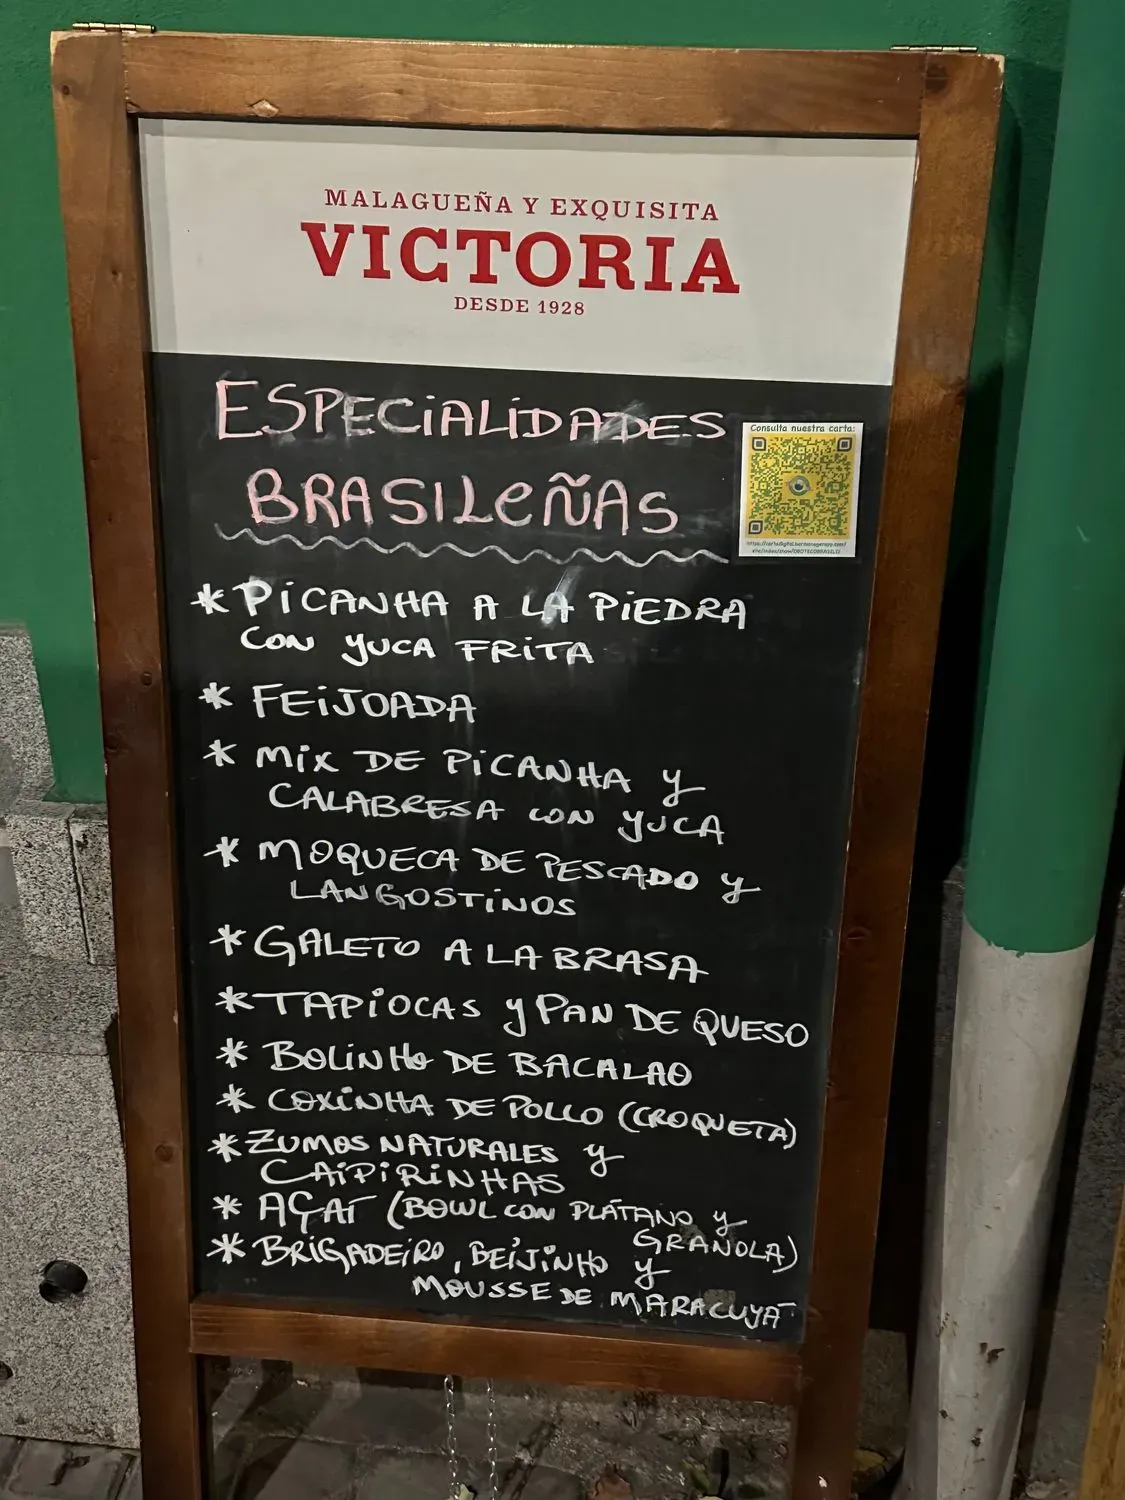 MALAGUEÑA Y EXQUISITA
VICTORIA
DESDE 1928
ESPECIALIDADES
BRASILEÑAS
Consulta nuestra carta:
* PICANHA A LA PIEDRA
CON YUCA FRITA
* FEIJOADA
* MIX DE PICANHA Y
CALABRESA CON YUCA
* MOQUECA DE PESCADO Y
LANGOSTINOS
* GALETO A LA BRASA
* TAPIOCAS Y PAN DE QUESO
* BOLINHO DE BACALAO
* COXINHA DE POLLO (CROQUETA)
* ZUMOS NATURALES Y
CAIPIRINHAS
* AÇAÍ (BOWL CON PLÁTANO Y
GRANOLA)
* BRIGADEIRO, BEIJINHO Y
MOUSSE DE MARACUYÁ